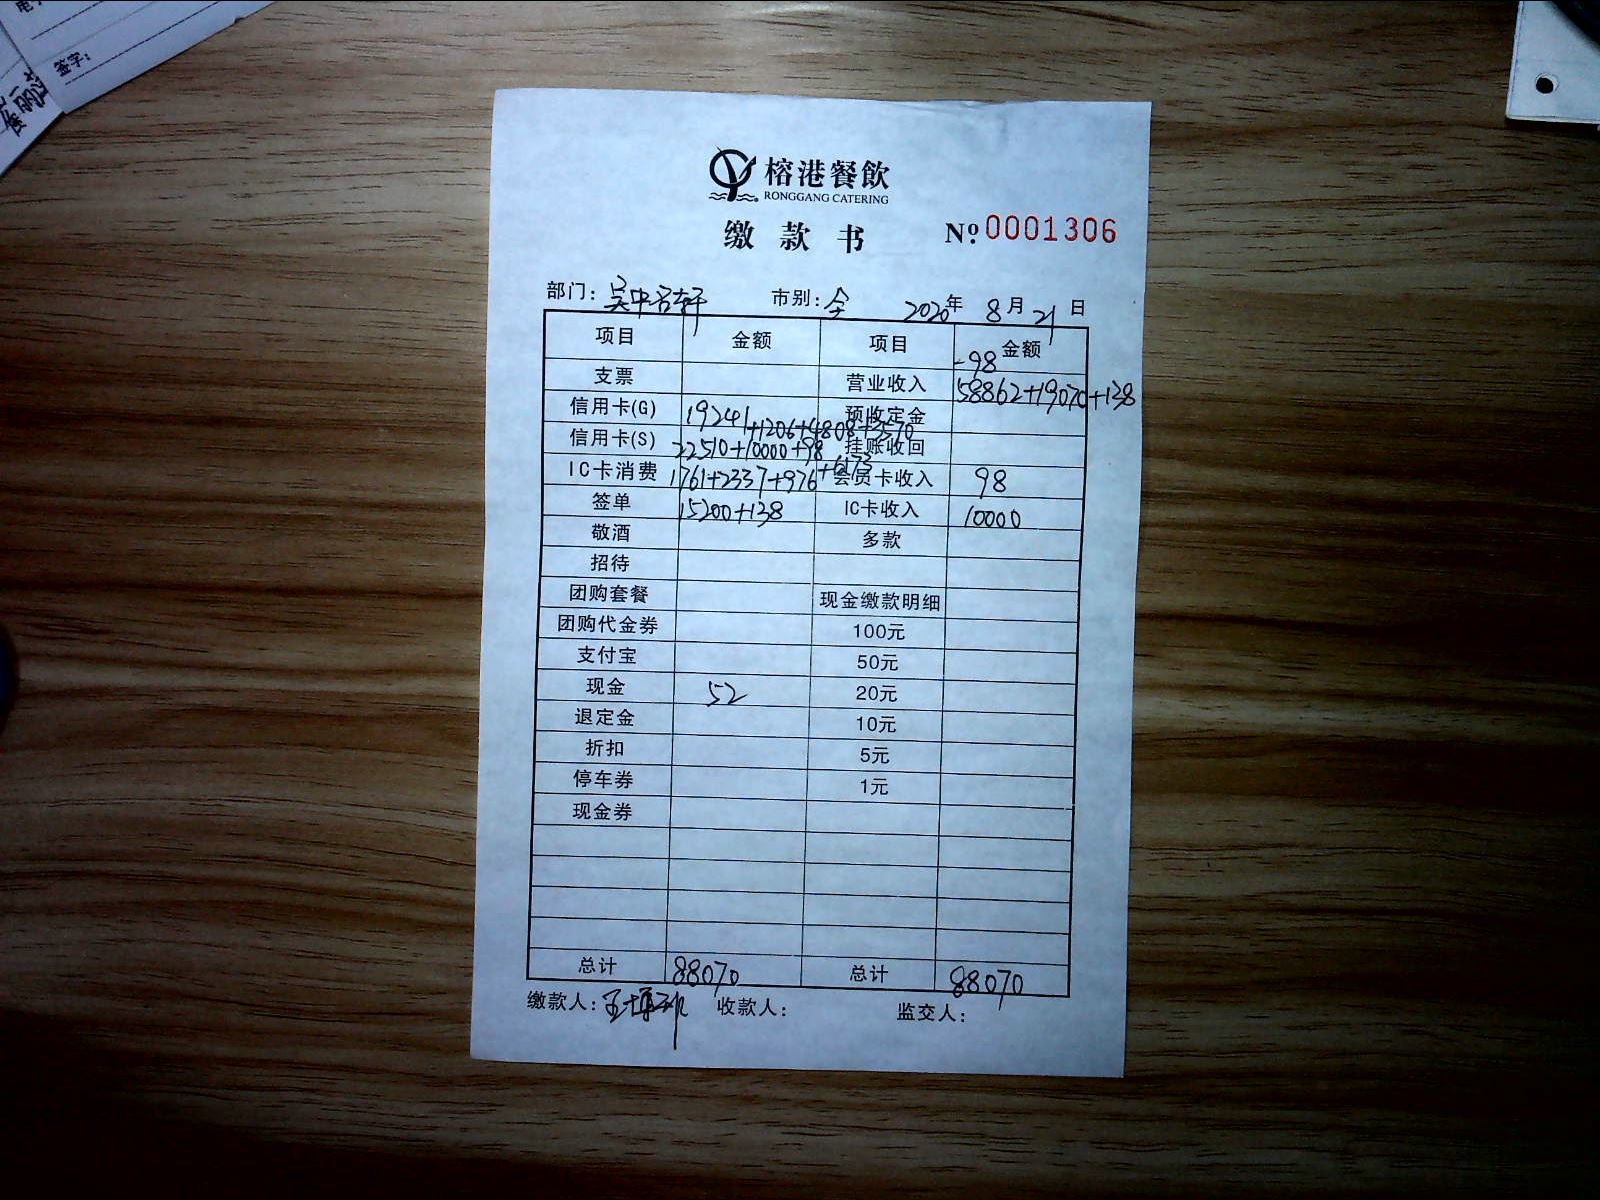 签字:
榕港餐飲
RONGGANG CATERING
缴款书 №0001306
部门: 吴中名轩 市别: 全 2020年 8月21日
项目 金额 项目 金额
-98
支票 营业收入 58862+19070+138
信用卡(G) 19241+1206+4808+3570 预收定金
信用卡(S) 22510+10000+98 挂账收回
IC卡消费 1761+2337+976+6173 会员卡收入 98
签单 15200+138 IC卡收入 10000
敬酒 多款
招待
团购套餐 现金缴款明细
团购代金券 100元
支付宝 50元
现金 52 20元
退定金 10元
折扣 5元
停车券 1元
现金券
总计 88070 总计 88070
缴款人: 收款人: 监交人: